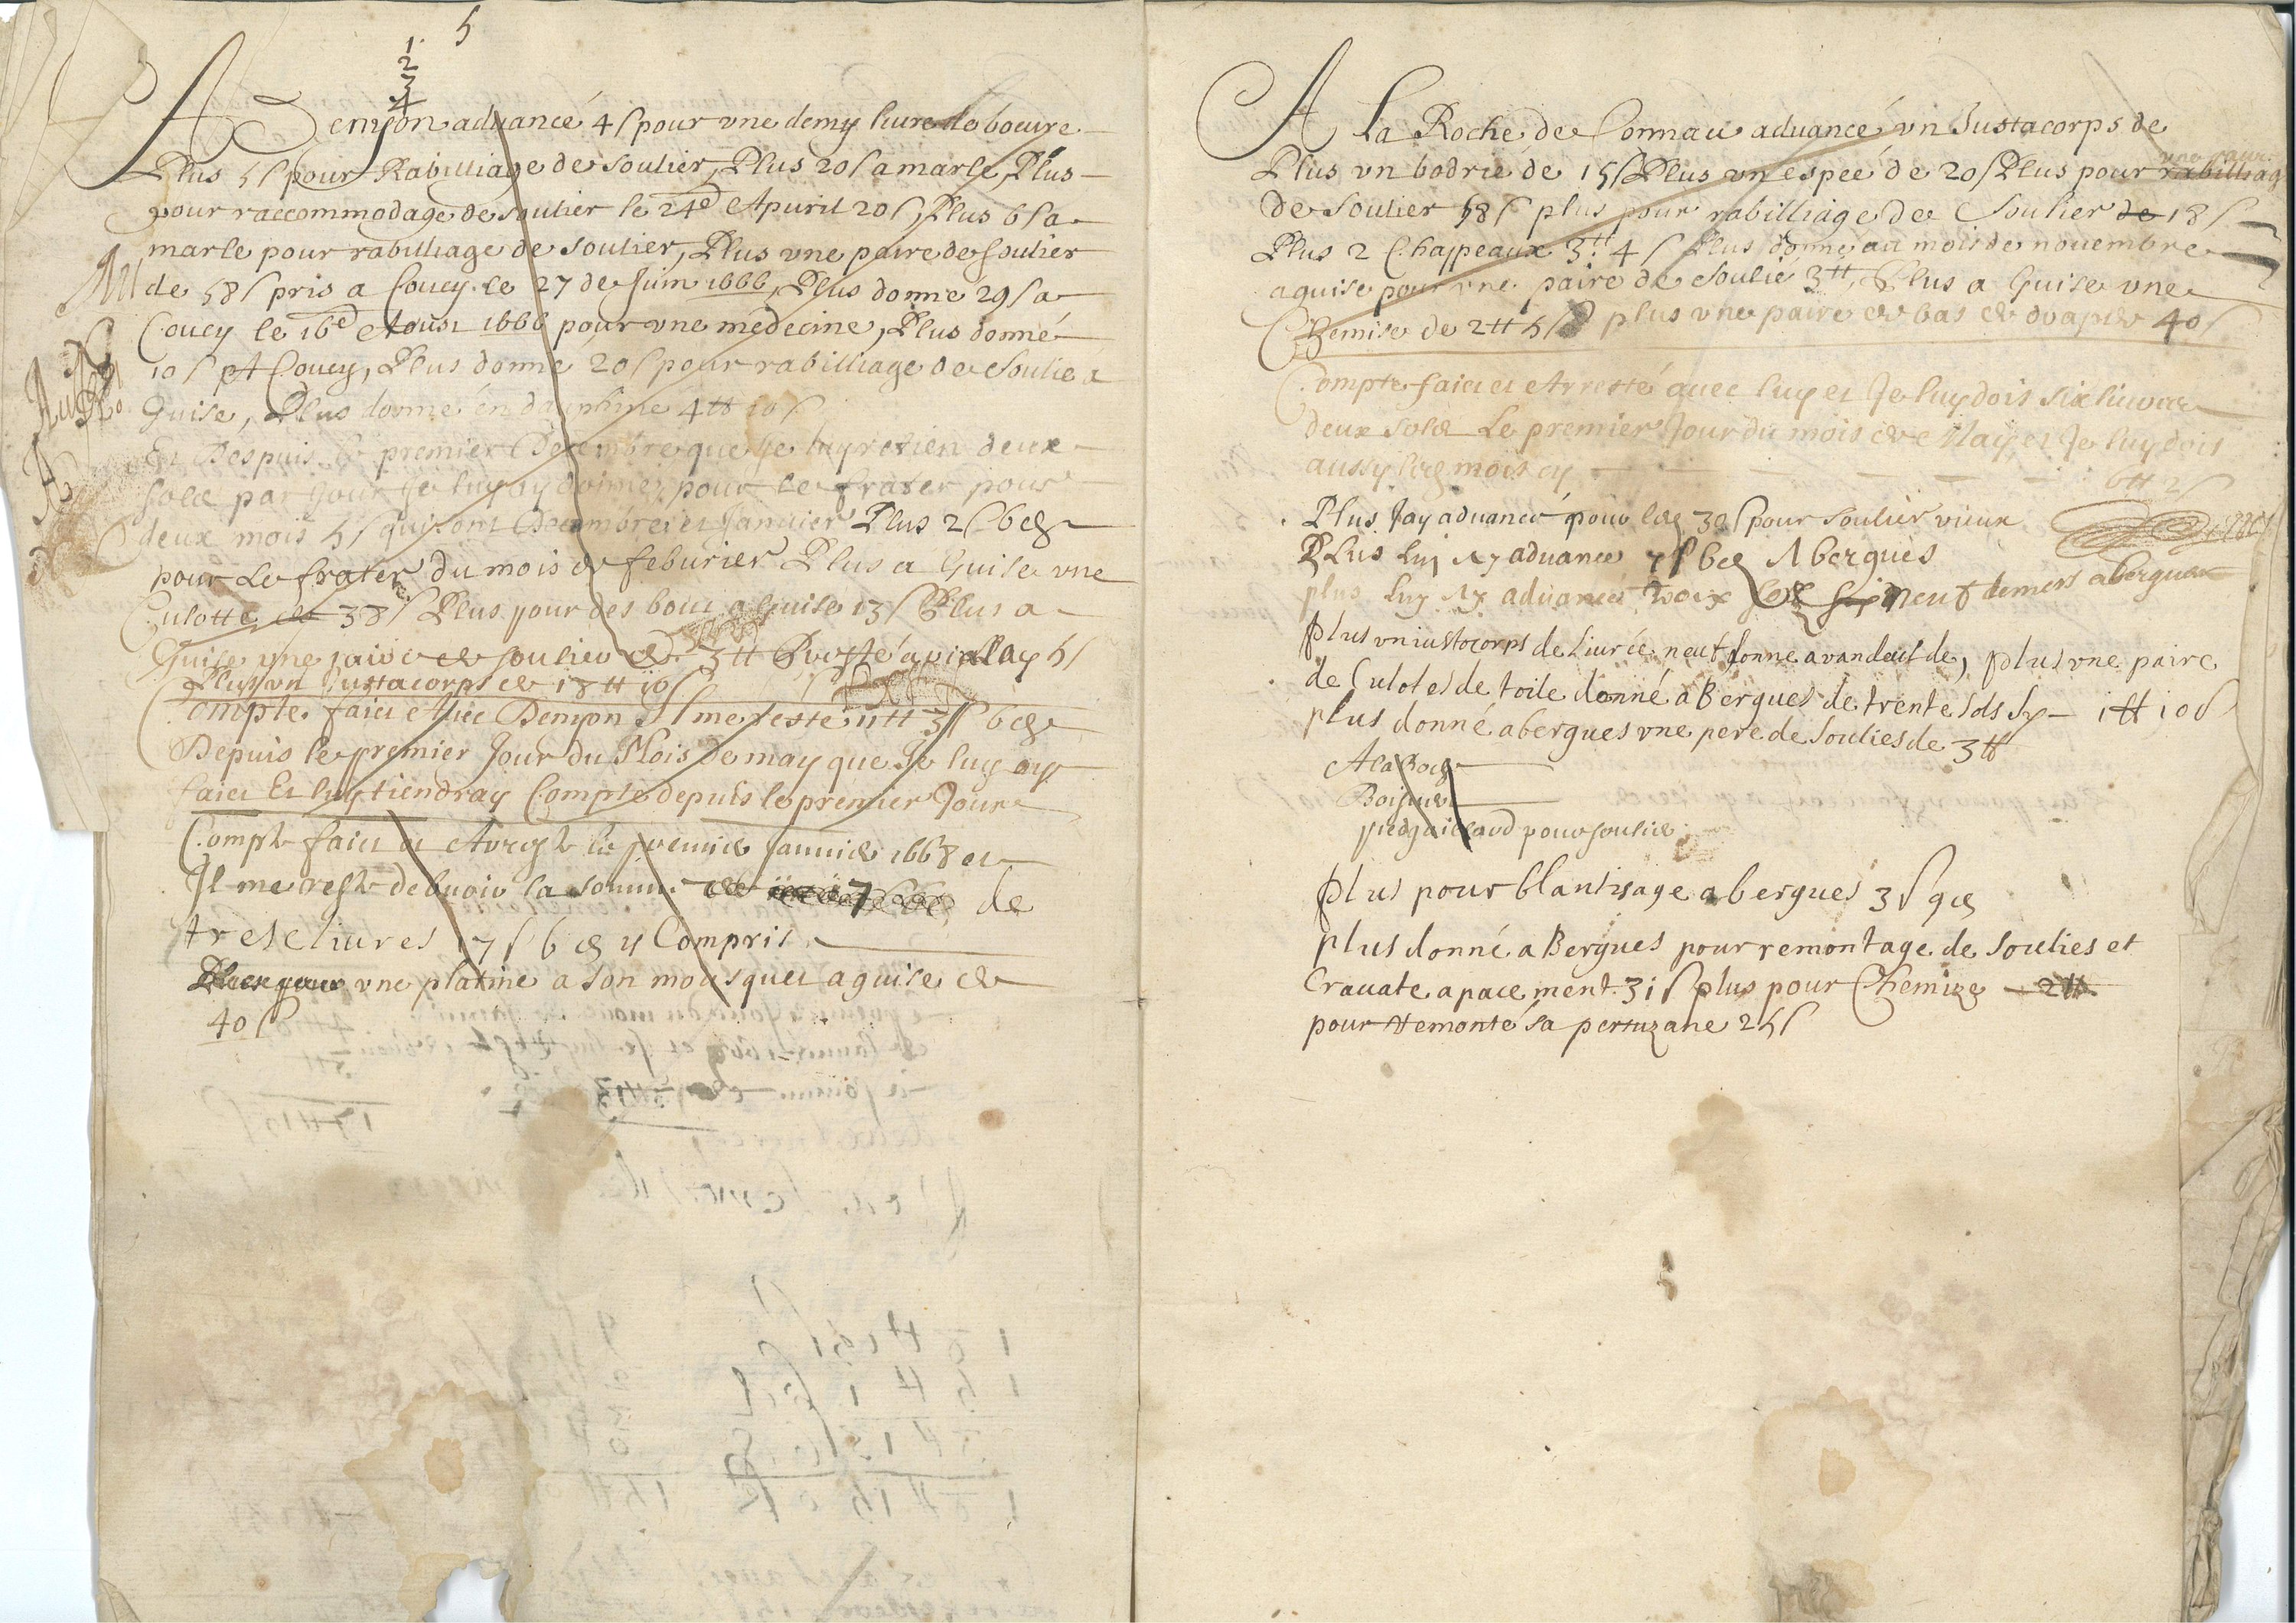 5
1
2
3
4
A Denyon aduancé 4 s pour vne demy liure de beure
Plus 5 s pour Rabilliage de soulier, Plus 20 s a marle, Plus
pour raccommodage de soulier le 24e Apuril 20 s, Plus 6 s a
marle pour rabilliage de soulier, Plus vne paire de soulier
de 58 s pris a Coucy le 27 de Juin 1666, Plus donne 29 s a
Coucy le 16e Aoust 1666 pour vne medecine, Plus donné
10 s A Coucy, Plus donne 20 s pour rabilliage de soulie a
Guise, Plus donné en dauphine 4 tt 10 s
Et Despuis le premier Decembre que Je luy retien deux
sols par Jour Je luy ay donné, pour le frater pour
deux mois 5 s qui sont Decembre et Januier Plus 2 s 6 d
pour Le frater du mois de feburier Plus a Guise vne
Culotte de 38 s Plus pour des bout a Guise 13 s Plus a
Guise vne paire de soulier de 3 tt
Plus vn Justacorps de 18 tt 10 s
Compte faict Auec Denyon Il me reste 11 tt 3 s 6 d
Depuis le premier Jour du Mois de may que Je luy ay
faict Et luy tiendray Compte depuis le premier Jour
Compte faict et Areste le premier Januier 1668 et
Il me reste debuoir la somme de de
trese liures 7 s 6 d y Compris
vne platine a son mousquet a guise de
40 s
A La Roche de Connau aduancé vn Justacorps de
Plus vn bodrié de 15 s Plus vn espeé de 20 s Plus pour rabilliag
de Soulier 58 s plus pour rabilliage de Soulier de 18 s
Plus 2 Chappeaux 3 tt 4 s Plus donné au mois de nouembre
a guise pour vne paire de Soulié 3 tt, Plus a Guise vne
Chemise de 2 tt 5 s plus vne paire de bas de drap de 40 s
Compte faict et Arresté auec luy et Je luy dois six liures
deux sols Le premier Jour du mois de May, et Je luy dois
aussy les mois cy
6 tt 2 s
Plus Jay aduancé pour les 30 s pour soulier vieux
PLus Luy Ay aduance 7 s 6 d A bergues
plus Luy Ay aduancé trois sols neuf deniers a bergues
plus vn iustocorps de Liurée neuf donne a vandeuil de, plus vne paire
de Culotes de toile donné a Bergues de trente sols Sy 1 tt 10 s
plus donné a bergues vne pere de soulies de 3 tt
A la Roche
pied gaillard pour soulie
plus pour blantisage a bergues 3 s 9 d
plus donné a Bergues pour remontage de soulies et
Crauate a pacement 31 s plus pour Chemize 2 tt
pour Remonté sa pertuzane 25 s